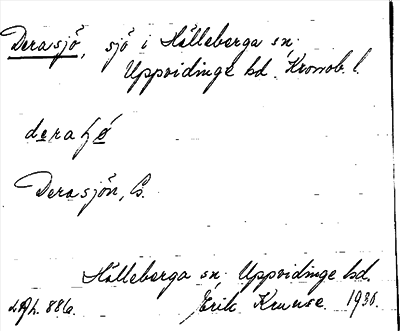 Derasjö, sjö i Hälleberga sn.
Uppvidinge hd. Kronob. l.
Derasjön,
Hälleberga sn. Uppvidinge hd.
Erik Kruuse. 1930.